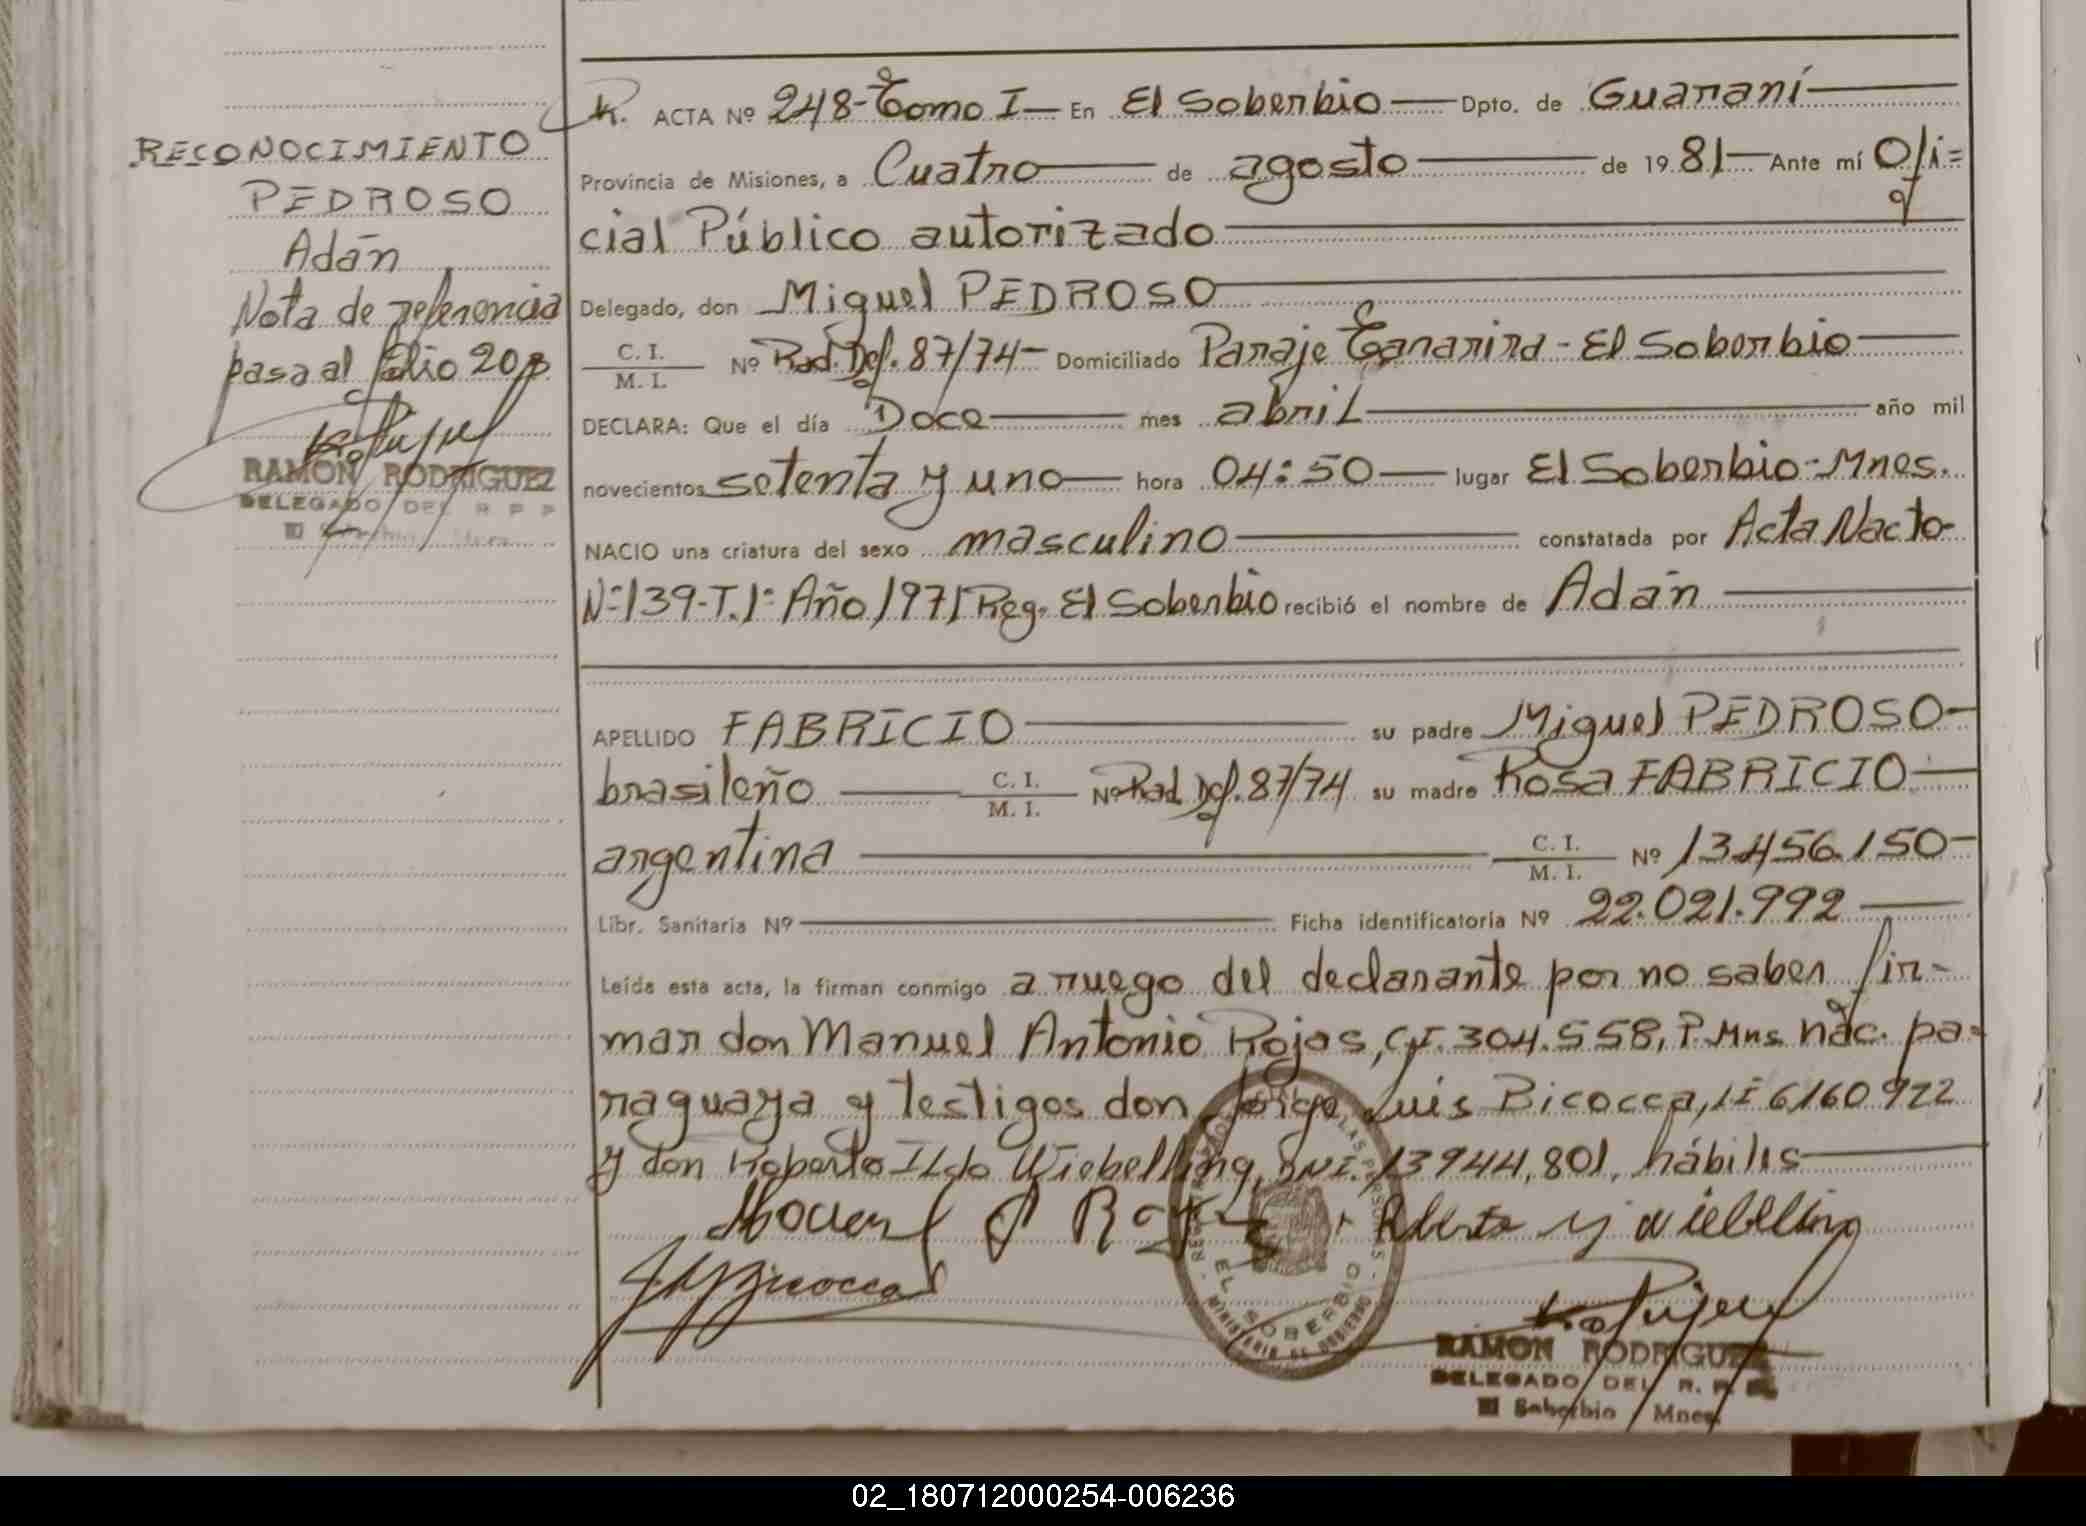 R. ACTA Nº 248-Tomo I- En El Soberbio Dpto. de Guaraní
Provincia de Misiones, a Cuatro de agosto de 1981 Ante mí Ofi=
cial Público autorizado
Delegado, don Miguel PEDROSO
C. I.
M. I. Nº Rad. Def. 87/74- Domiciliado Paraje Tararira - El Soberbio
DECLARA: Que el día Doce mes abril año mil
novecientos setenta y uno hora 04:50 lugar El Soberbio-Mnes.
NACIO una criatura del sexo masculino constatada por Acta Nacto
Nº 139-T.1º Año 1971 Reg. El Soberbio recibió el nombre de Adán
APELLIDO FABRICIO su padre Miguel PEDROSO-
brasileño C. I. M. I. Nº Rad. Def. 87/74 su madre Rosa FABRICIO
argentina C. I. M. I. Nº 13.456.150-
Libr. Sanitaria Nº Ficha identificatoria Nº 22.021.992
Leída esta acta, la firman conmigo a ruego del declarante por no saber fir-
mar don Manuel Antonio Rojas, C.I. 304.558, P. Mns. nac. pa-
raguaya y testigos don Jorge Luis Bicocca, LE 6160922
y don Roberto Ildo Wiebelling, DNI. 13944,801, hábiles
RAMON RODRIGUEZ
DELEGADO DEL R. P. P.
El Soberbio Mnes.
EL SOBERBIO
MINISTERIO DE GOBIERNO
RECONOCIMIENTO
PEDROSO
Adán
Nota de referencia
pasa al folio 208
RAMON RODRIGUEZ
DELEGADO DEL R P P
02_180712000254-006236